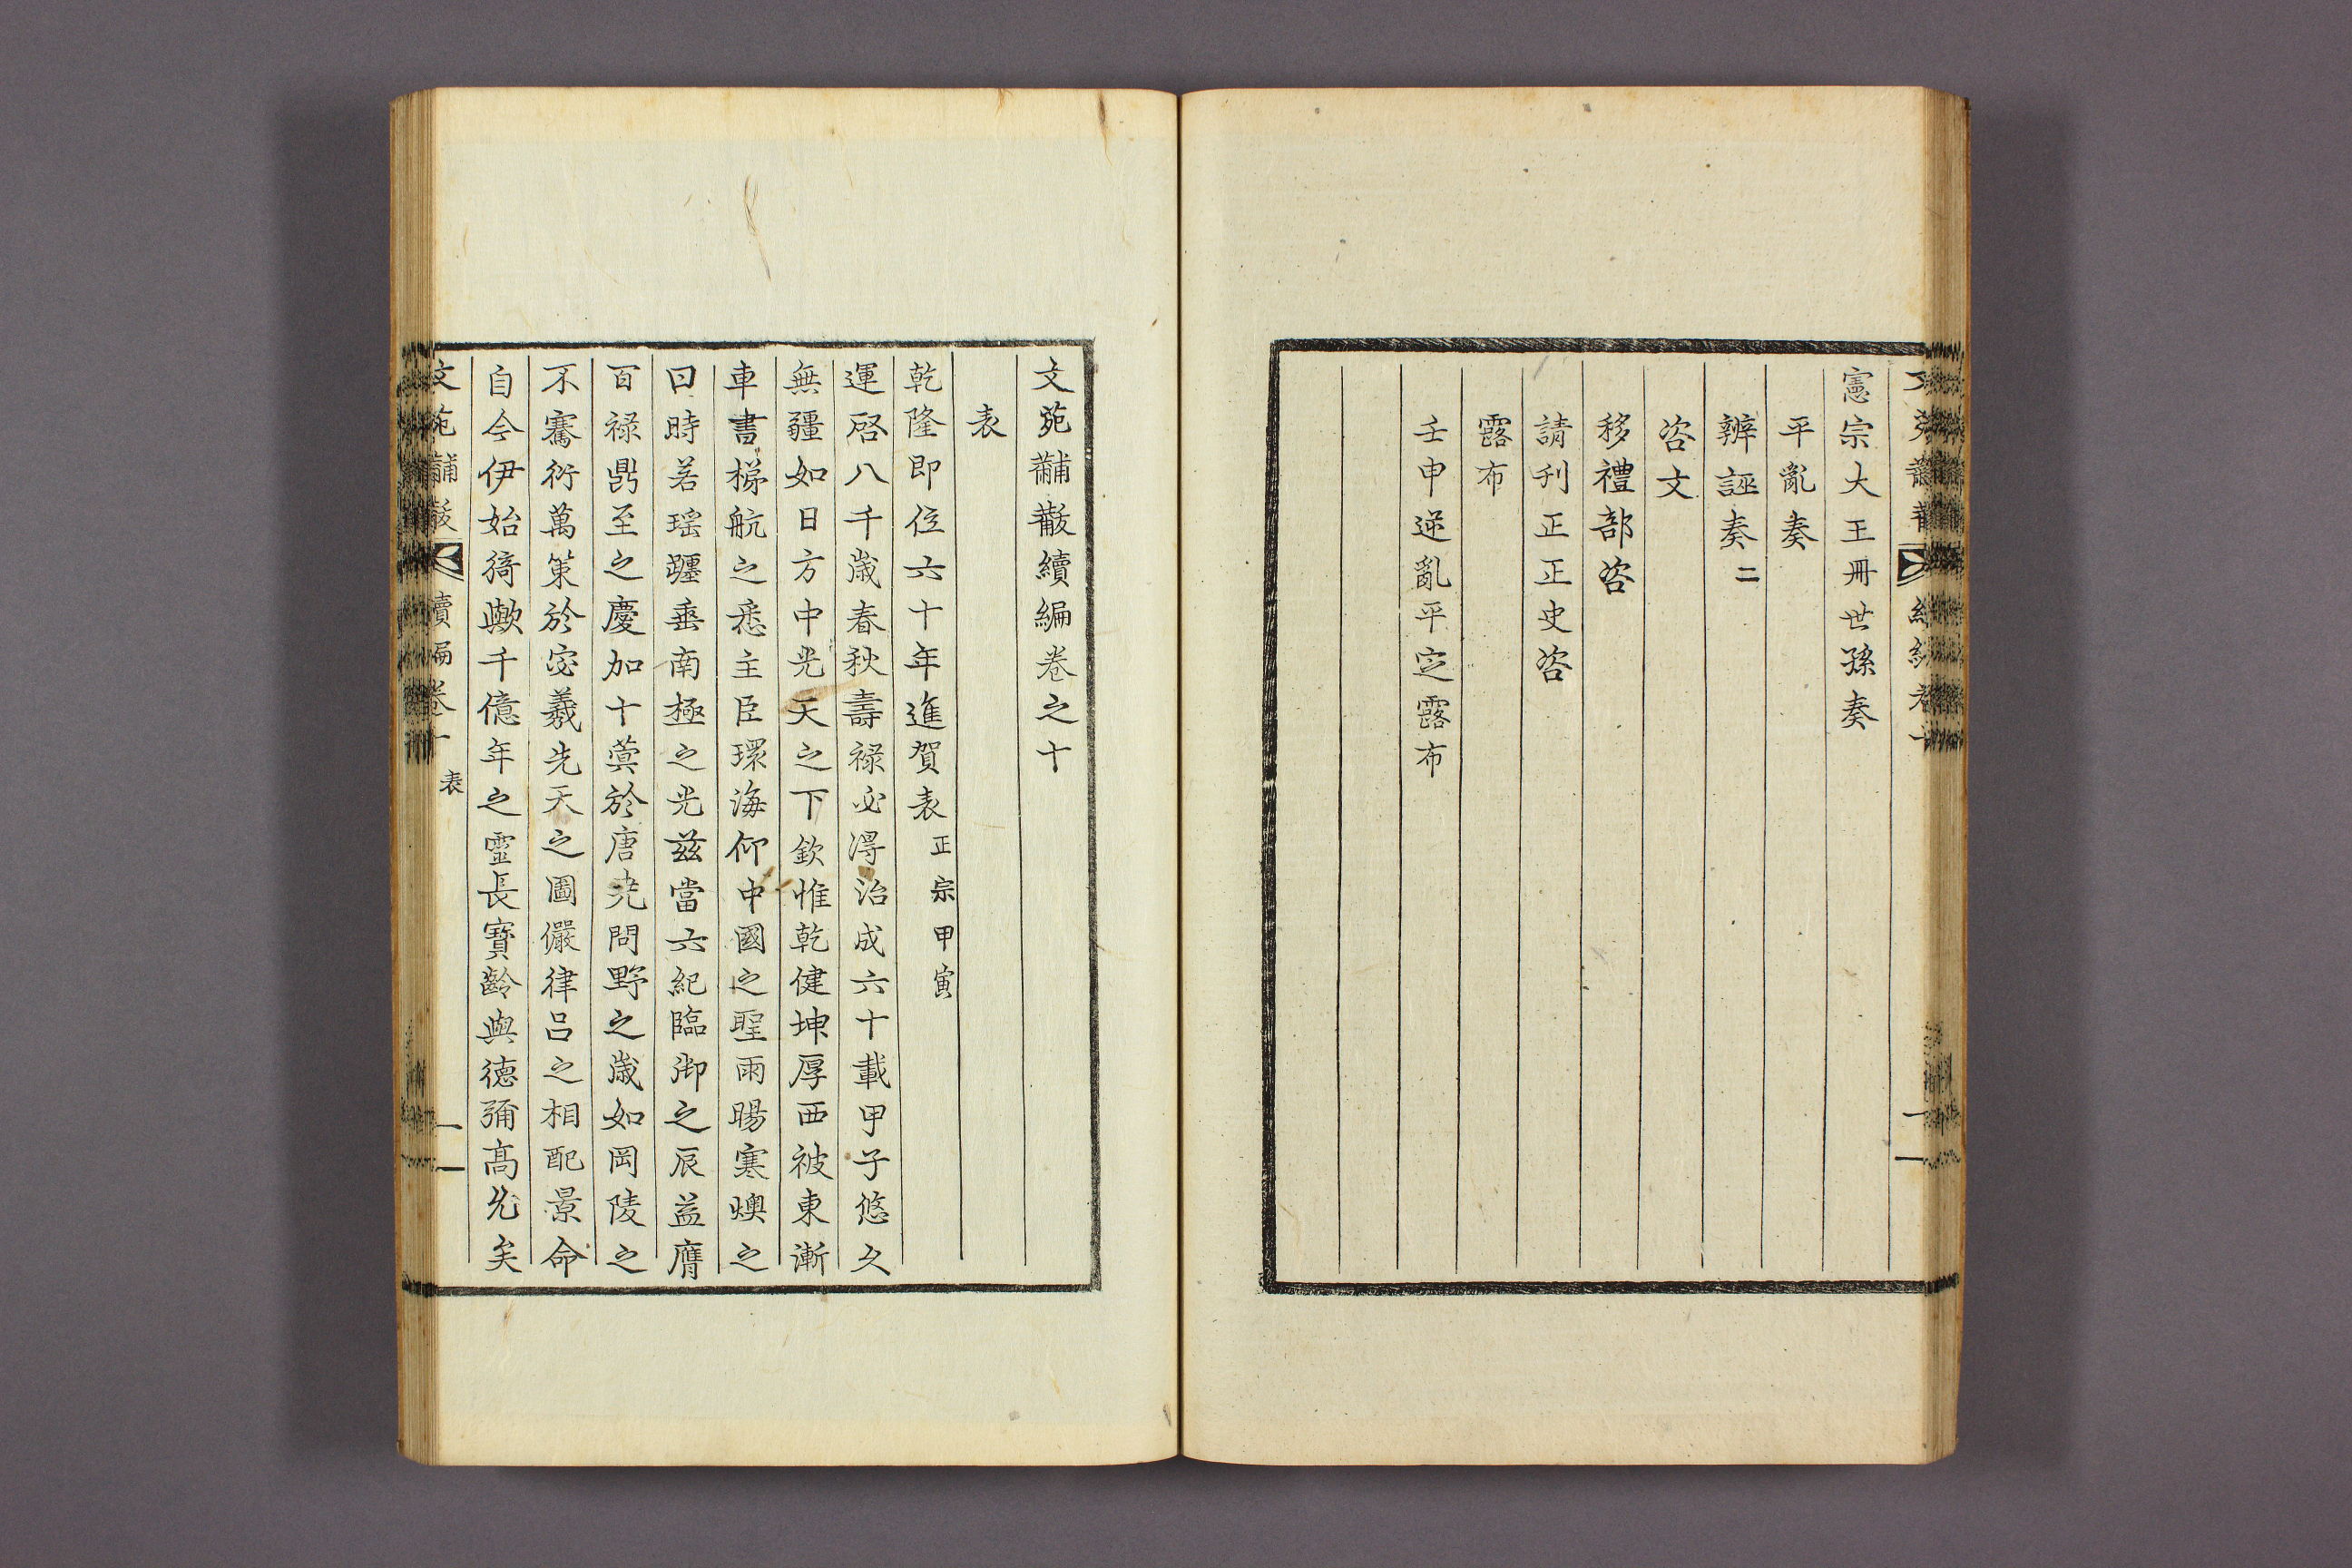 憲宗大王冊世孫奏
平亂奏
辨誣奏二
咨文
移禮部咨
請刊正正史咨
露布
壬申逆亂平定露布
文苑黼黻續編卷之十
表
乾隆即位六十年進賀表正宗甲寅
運啓八千歲春秋壽祿必得治成六十載甲子悠久
無疆如日方中光天之下欽惟乾健坤厚西被東漸
車書梯航之悉主臣環海仰中國之聖雨暘寒燠之
曰時若瑤躔垂南極之光玆當六紀臨御之辰益膺
百祿鼎至之慶加十蓂於唐堯問野之歲如岡陵之
不騫衍萬策於宓羲先天之圖儼律呂之相配景命
自今伊始猗歟千億年之靈長寶齡與德彌高允矣
文苑黼黻 續編卷十 表 一